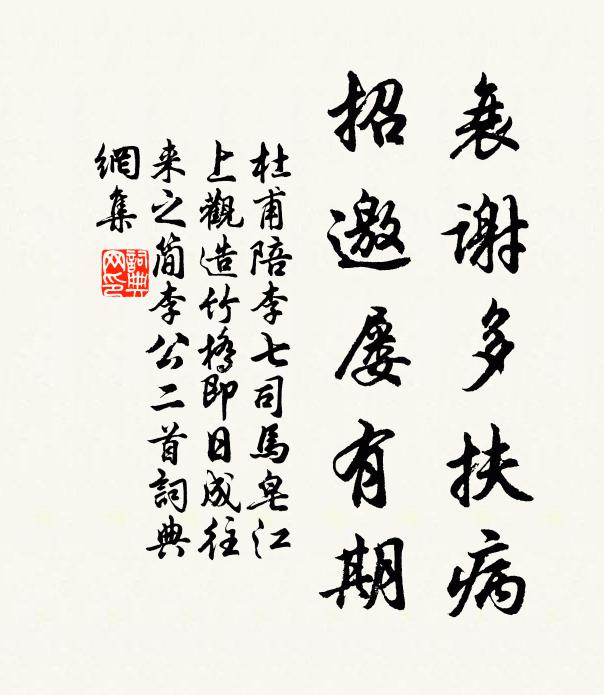 衰谢多扶病
招邀屡有期
杜甫陪李七司馬皂江
上觀造竹橋即日成往
来之简李公二首詞典
網集
詞典网印